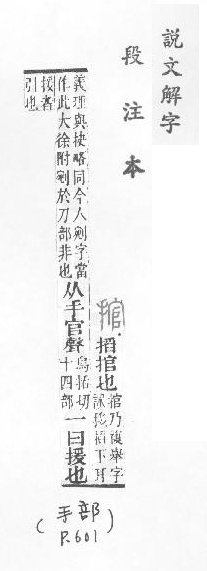 說文解字
段注本
捾
搯捾也
捾乃複舉字
誤移搯下耳
義理與抉略同今人剜字當
作此大徐附剜於刀部非也
从手官聲
烏括切
十四部
一曰援也
援者
引也
(手部
P.601)